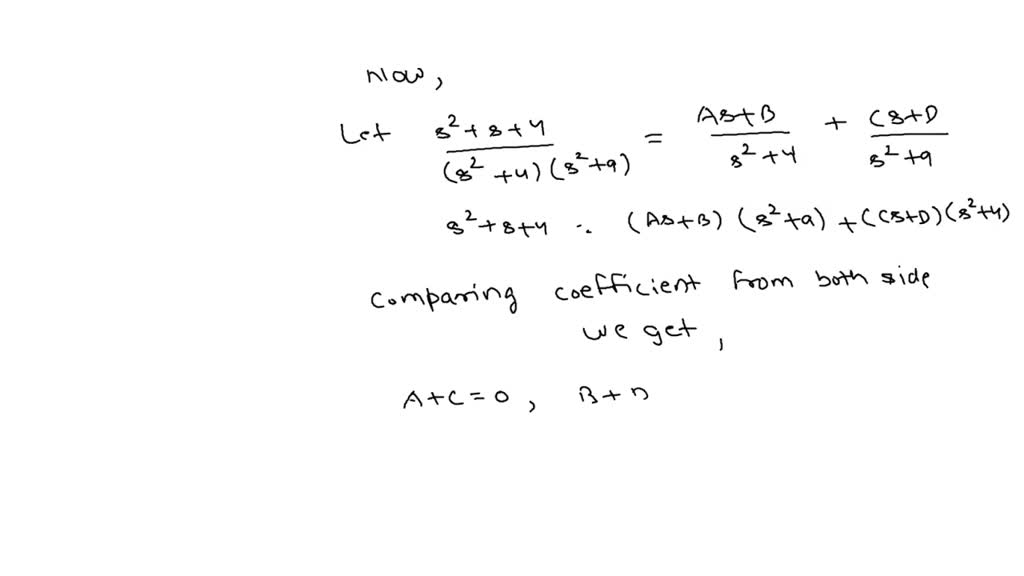 Now,
Let s²+s+4 / (s²+4)(s²+9) = As+B / s²+4 + Cs+D / s²+9
s²+s+4 ∴ (As+B) (s²+9) + (Cs+D)(s²+4)
Comparing coefficient from both side
we get,
A+C=0, B+D